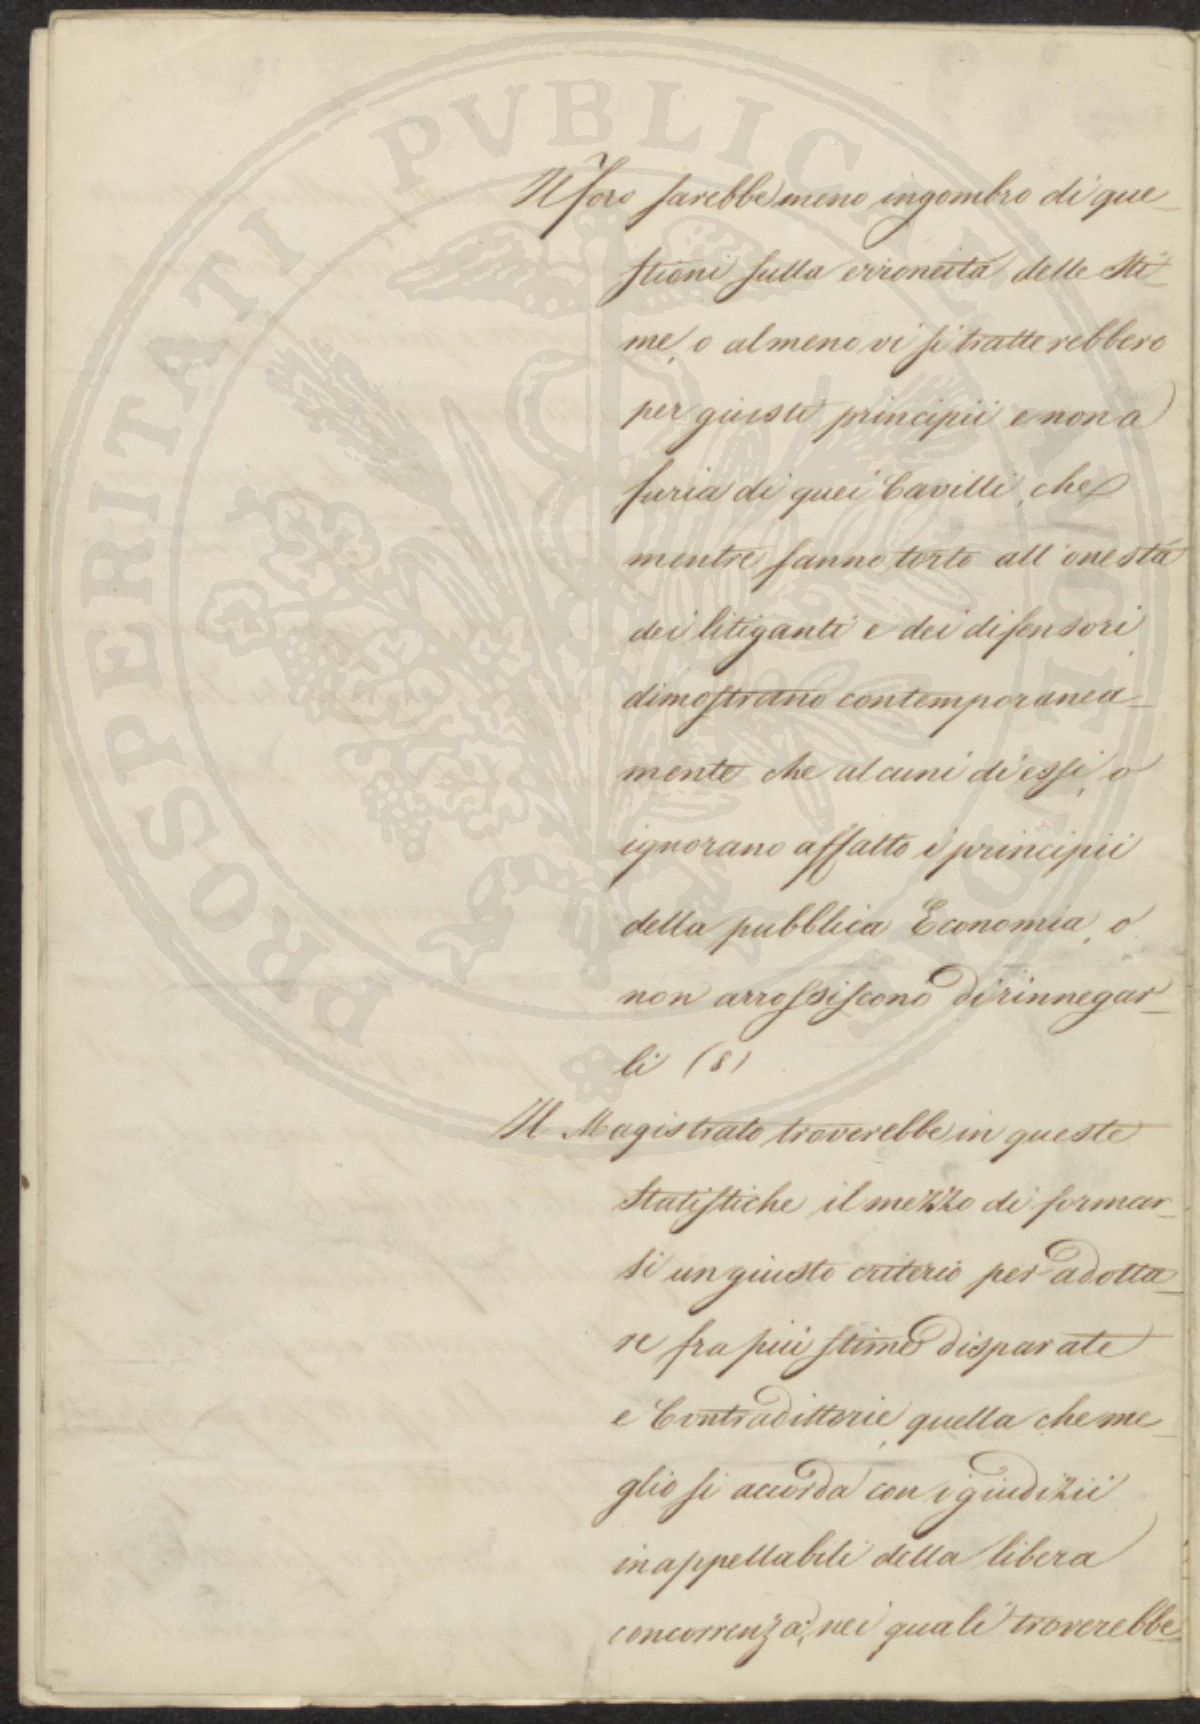 PROSPERITATI PVBLICAE
Il foro sarebbe meno ingombro di que_
stioni sulla erroneità delle sti_
me, o almeno vi si tratterebbero
per giusti principii e non a
furia di quei Cavilli, che
mentre fanno torto all'onestà
dei litiganti e dei difensori,
dimostrano contemporanea_
mente che alcuni di essi, o
ignorano affatto i principii
della pubblica Economia, o
non arrossiscono di rinnegar_
li (8)
Il Magistrato troverebbe in queste
Statistiche il mezzo di formar_
si un giusto criterio per adotta_
re fra più stime disparate
e Contradittorie, quella che me_
glio si accorda con i giudizii
inappellabili della libera
concorrenza, nei quali troverebbe